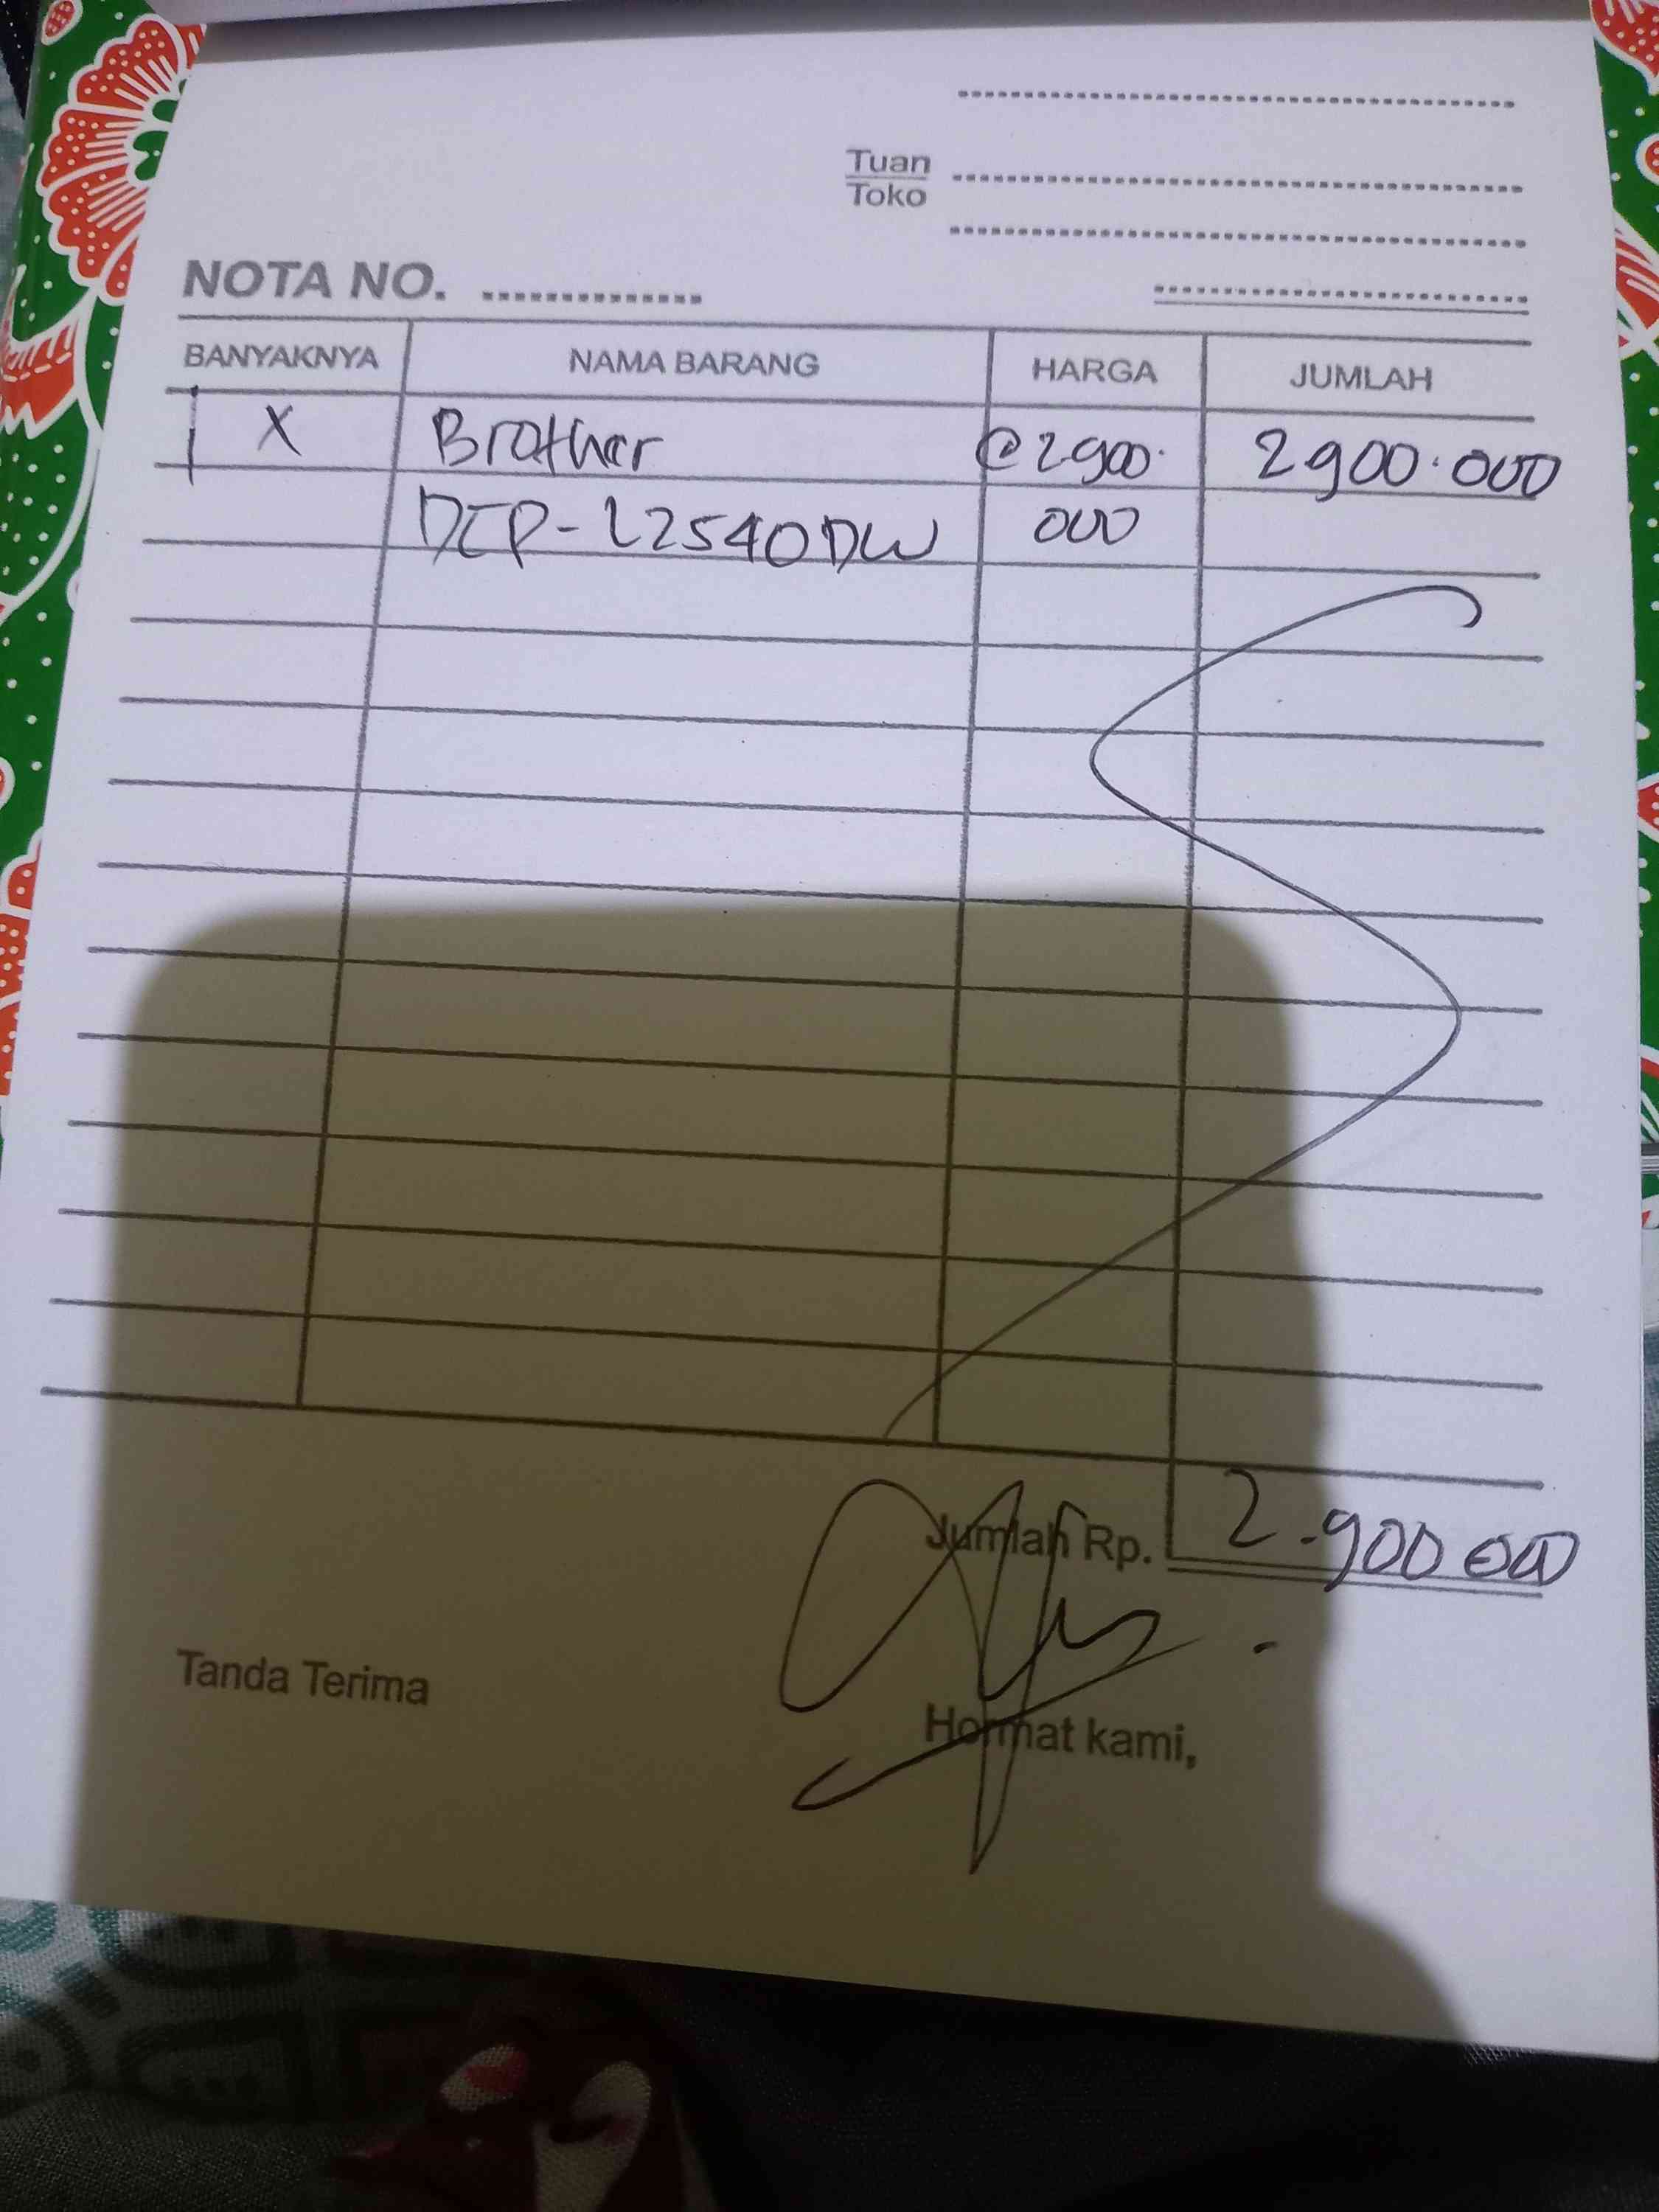 Tuan
Toko
NOTA NO.
BANYAKNYA NAMA BARANG HARGA JUMLAH
1 X Brother @2900. 2900.000
DCP-L2540DW 000
Jumlah Rp. 2.900 000
Tanda Terima
Hormat kami,